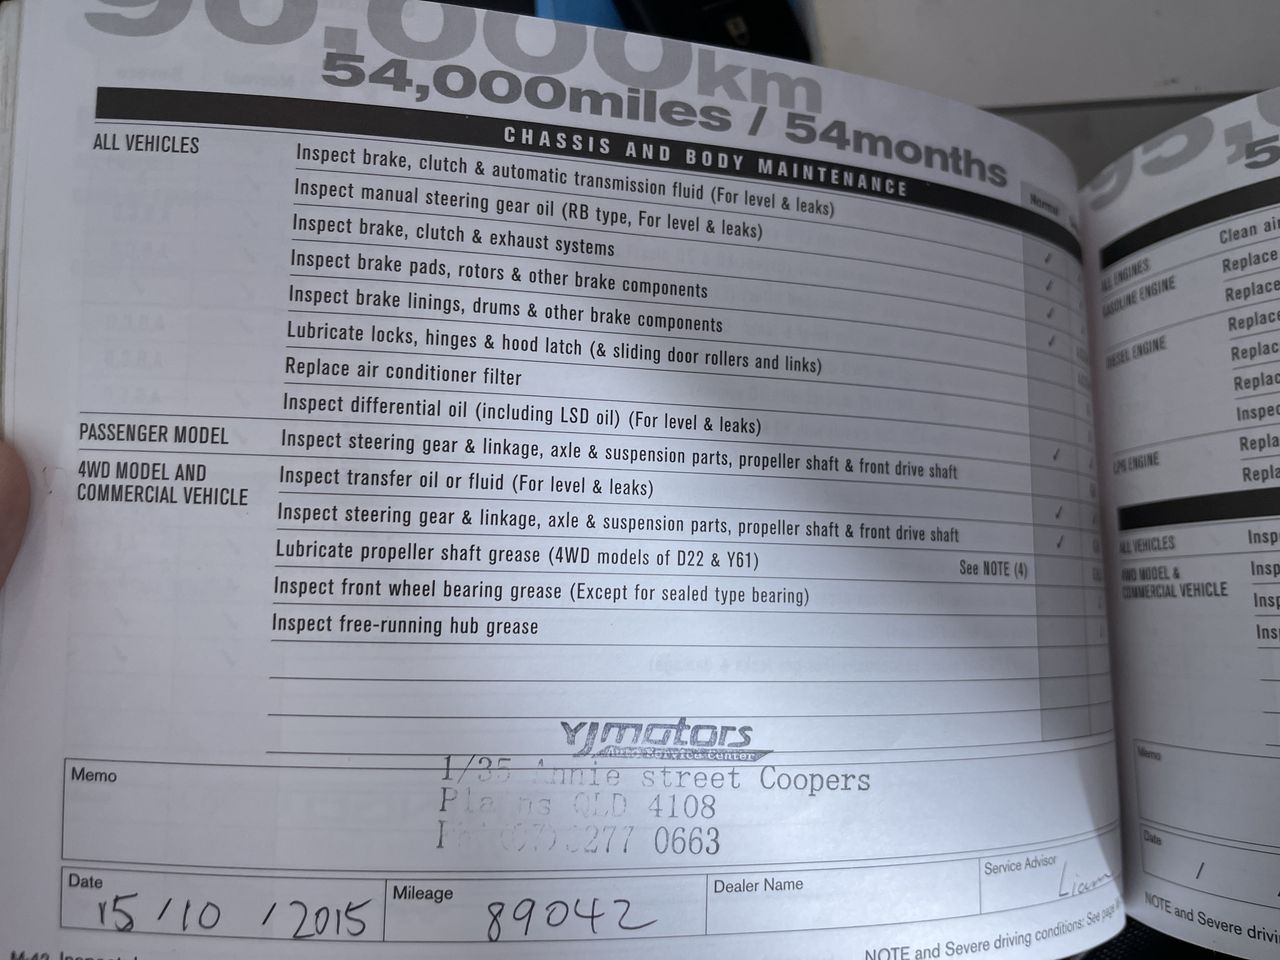 90,000km
54,000miles / 54months
CHASSIS AND BODY MAINTENANCE
Normal
ALL VEHICLES
Inspect brake, clutch & automatic transmission fluid (For level & leaks)
Inspect manual steering gear oil (RB type, For level & leaks) ✓
Inspect brake, clutch & exhaust systems ✓
Inspect brake pads, rotors & other brake components ✓
Inspect brake linings, drums & other brake components ✓
Lubricate locks, hinges & hood latch (& sliding door rollers and links)
Replace air conditioner filter
Inspect differential oil (including LSD oil) (For level & leaks)
PASSENGER MODEL
Inspect steering gear & linkage, axle & suspension parts, propeller shaft & front drive shaft ✓
4WD MODEL AND
COMMERCIAL VEHICLE
Inspect transfer oil or fluid (For level & leaks) ✓
Inspect steering gear & linkage, axle & suspension parts, propeller shaft & front drive shaft ✓
Lubricate propeller shaft grease (4WD models of D22 & Y61) See NOTE (4)
Inspect front wheel bearing grease (Except for sealed type bearing)
Inspect free-running hub grease
YJmotors
Auto Service Center
Memo
1/35 Annie street Coopers
Plains QLD 4108
(07)3277 0663
Date
15/10/2015
Mileage
89042
Dealer Name
Service Advisor
Liam
NOTE and Severe driving conditions: See page
M-42
95,0
5
ALL ENGINES
Clean air
GASOLINE ENGINE
Replace
Replace
Replace
DIESEL ENGINE
Replace
Replace
Inspec
LPG ENGINE
Repla
Repla
ALL VEHICLES
Insp
4WD MODEL &
COMMERCIAL VEHICLE
Insp
Insp
Ins
Memo
Date
/
NOTE and Severe drivi